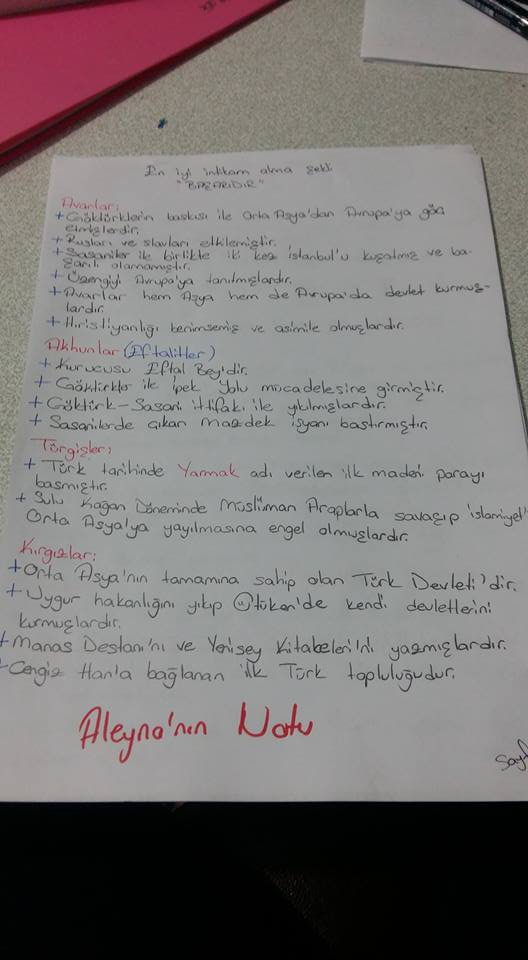 En iyi intikam alma şekli
"BAŞARIDIR"
Avarlar:
+ Göktürklerin baskısı ile Orta Asya'dan Avrupa'ya göç
etmişlerdir.
+ Rusları ve slavları etkilemiştir.
+ Sasaniler ile birlikte iki kez İstanbul'u kuşatmış ve ba-
şarılı olamamıştır.
+ Üzengiyi Avrupa'ya tanıtmışlardır.
+ Avarlar hem Asya hem de Avrupa'da devlet kurmuş-
lardır.
+ Hıristiyanlığı benimsemiş ve asimile olmuşlardır.
Akhunlar (Eftalitler)
+ Kurucusu Eftal Bey'dir.
+ Göktürkler ile İpek Yolu mücadelesine girmiştir.
+ Göktürk-Sasani ittifakı ile yıkılmışlardır.
+ Sasanilerde çıkan Mazdek isyanı bastırmıştır.
Türgişler:
+ Türk tarihinde Yarmak adı verilen ilk madeni parayı
basmıştır.
+ Sulu Kağan Döneminde Müslüman Araplarla savaşıp İslamiyet'
Orta Asya'ya yayılmasına engel olmuşlardır.
Kırgızlar:
+ Orta Asya'nın tamamına sahip olan Türk Devleti'dir.
+ Uygur hakanlığını yıkıp Ötüken'de kendi devletlerini
kurmuşlardır.
+ Manas Destanı'nı ve Yenisey Kitabeleri'ni yazmışlardır.
+ Cengiz Han'a bağlanan ilk Türk topluluğudur.
Aleyna'nın Notu